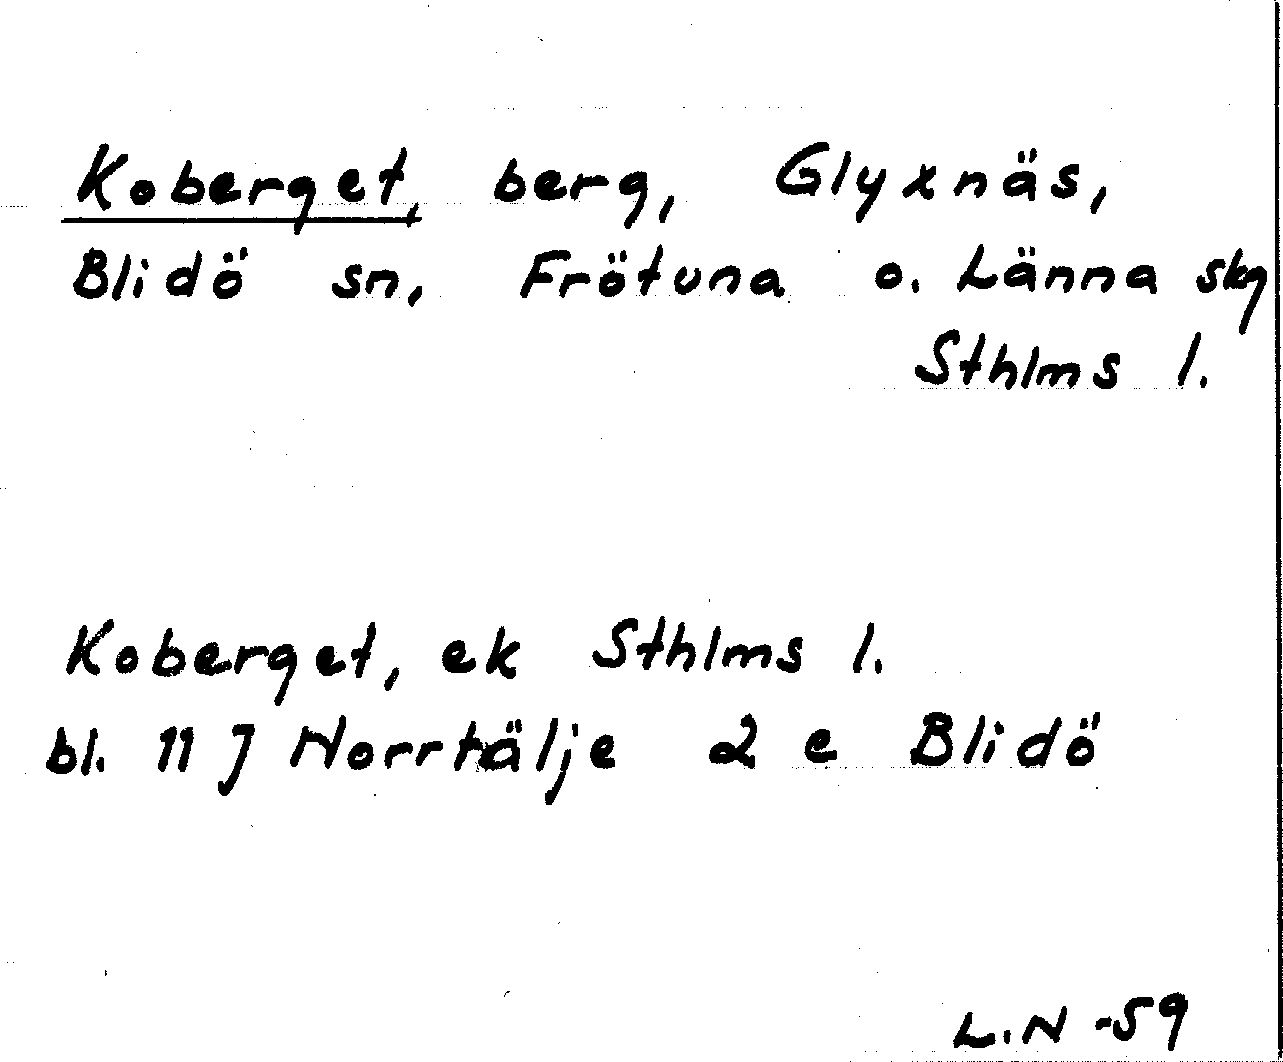 Koberget, berg, Glyxnäs,
Blidö sn, Frötuna o. Länna skg
Sthlms l.
Koberget, ek Sthlms l.
bl. 11 J Norrtälje 2 e Blidö
L.N -59